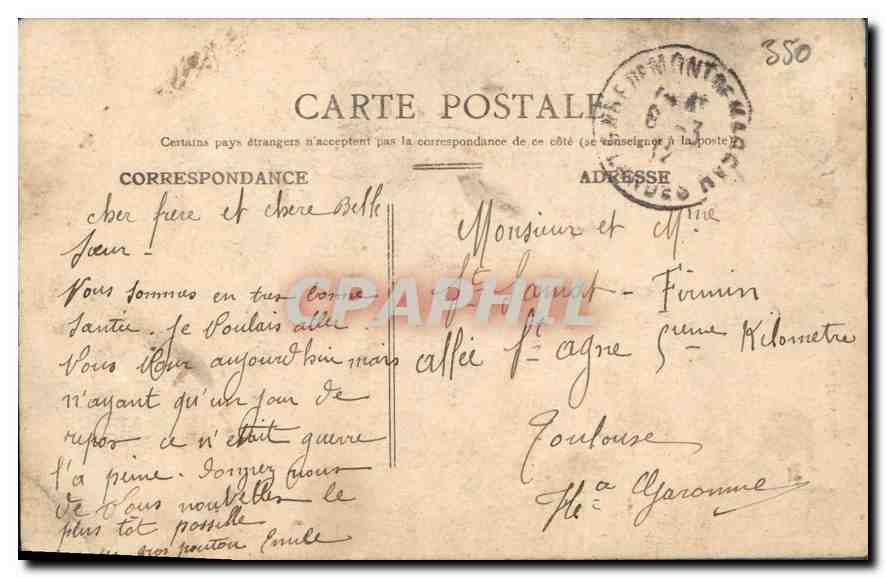 350
GARE DE MONT DE MARSAN
8 - 3
12
LANDES
CARTE POSTALE
Certains pays étrangers n'acceptent pas la correspondance de ce côté (se renseigner à la poste)
CORRESPONDANCE
ADRESSE
cher frère et chère Belle
Sœur -
Vous sommes en tres bonne
Santée. Je voulais aller
Vous voir aujourd'hui mais
n'ayant qu'un jour de
repos ce n'etait guerre
l'a peine. Donnez nous
de Vous nouvelles le
plus tôt possible
gros Emile
Monsieur et Mme
Firmin
allée St agne 5ieme Kilometre
Toulouse
Hte Garonne
CPAPHIL